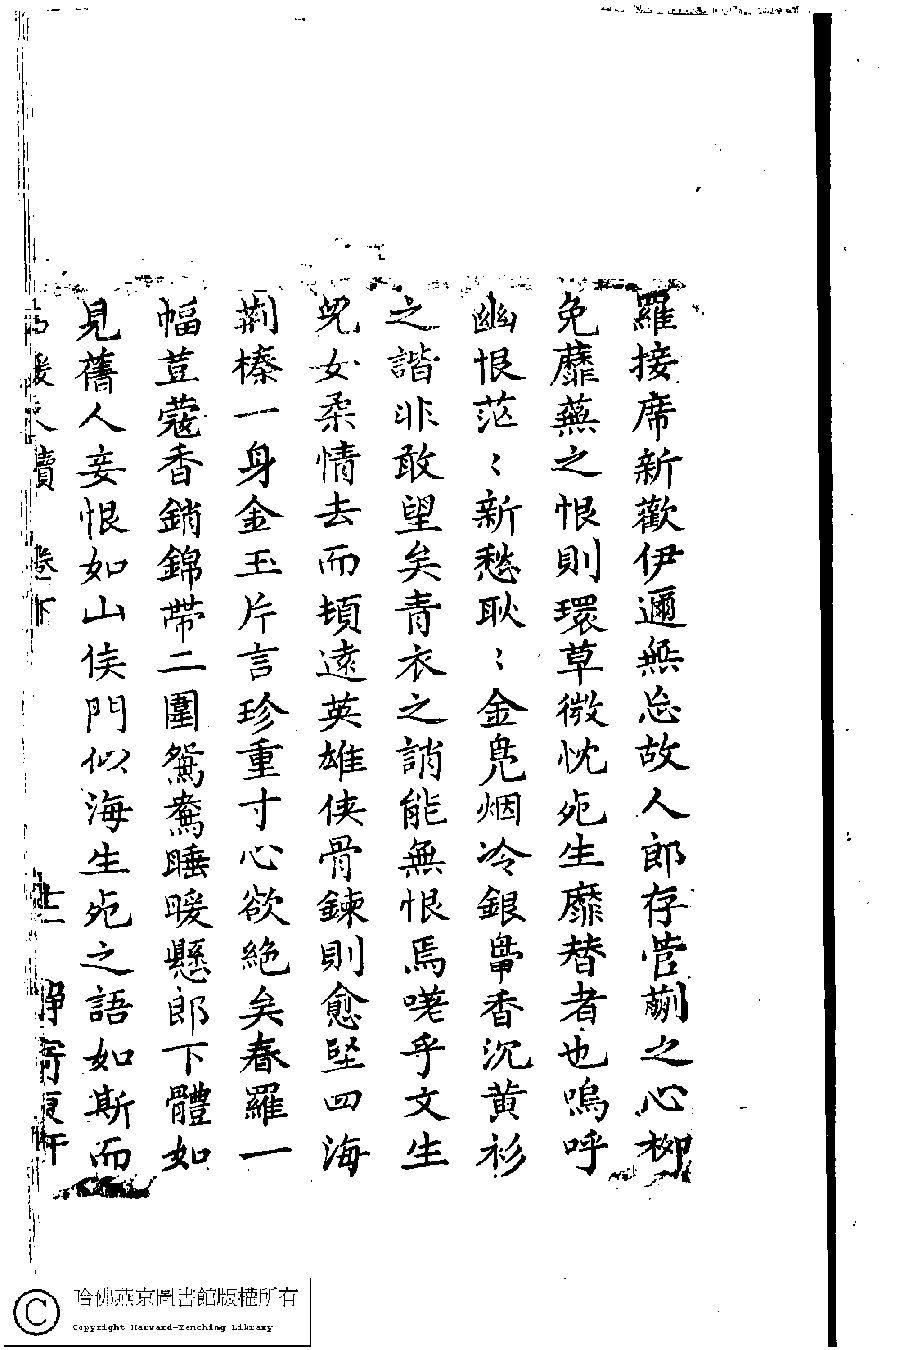 羅接席新歡伊邇無忘故人郎存菅蒯之心柳
免蘼蕪之恨則環草微忱死生靡替者也嗚呼
幽恨茫〻新愁耿〻金鳧烟冷銀鼎香沉黃衫
之諧非敢望矣青衣之誚能無恨焉嗟乎文生
兒女柔情去而頓遠英雄俠骨鍊則愈堅四海
荆榛一身金玉片言珍重寸心欲絕矣春羅一
幅荳蔻香銷錦帶二圍鴛鴦睡暖懸郎下體如
見舊人妾恨如山侯門似海生死之語如斯而
卷下
哈佛燕京圖書館版權所有
Copyright Harvard-Yenching Library